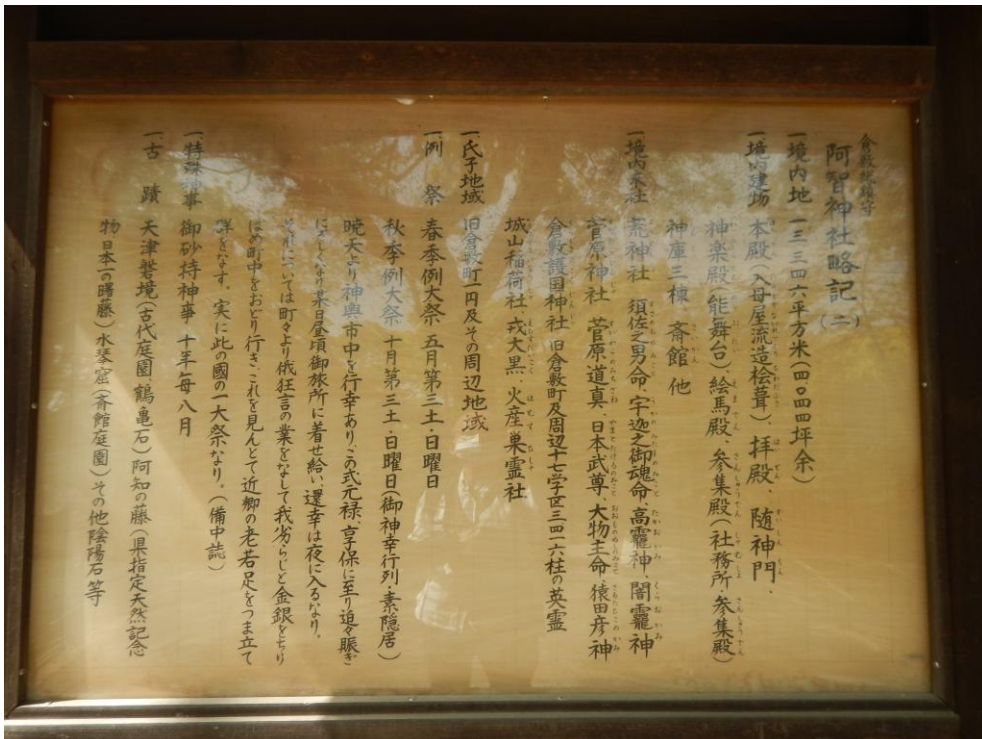 倉敷総鎮守
阿智神社略記(二)
一、境内地 一三三四六平方米(四〇四四坪余)
一、境内建物 本殿(入母屋流造桧葺)、拝殿、随神門、
神楽殿(能舞台)、絵馬殿、参集殿(社務所・参集殿)
神庫三棟、斎館 他
一、境内末社 荒神社 須佐之男命、宇迦之御魂命、高龗神、闇龗神
菅原神社 菅原道真、日本武尊、大物主命、猿田彦神
倉敷護国神社 旧倉敷町及周辺十七学区三四一六柱の英霊
城山稲荷社、戎大黒、火産巣霊社
一、氏子地域 旧倉敷町一円及その周辺地域
一、例祭 春季例大祭 五月第三土・日曜日
秋季例大祭 十月第三土・日曜日(御神幸行列・素隠居)
暁天より神輿市中を行幸あり、この式元禄、享保に至り追々賑ぎ
にぎしくなり某日昼頃御旅所に着せ給い、還幸は夜に入るなり。
それについては町々より俄狂言の業をなして我劣らじと金銀をちり
ばめ町中をおどり行き、これを見んとて近郷の老若足をつま立て
群をなす。実に此の國の一大祭なり。(備中誌)
一、特殊神事 御砂持神事 十年毎八月
一、古蹟 天津磐境(古代庭園 鶴亀石)阿知の藤(県指定天然記念
物 日本一の曙藤)水琴窟(斎館庭園)その他陰陽石等